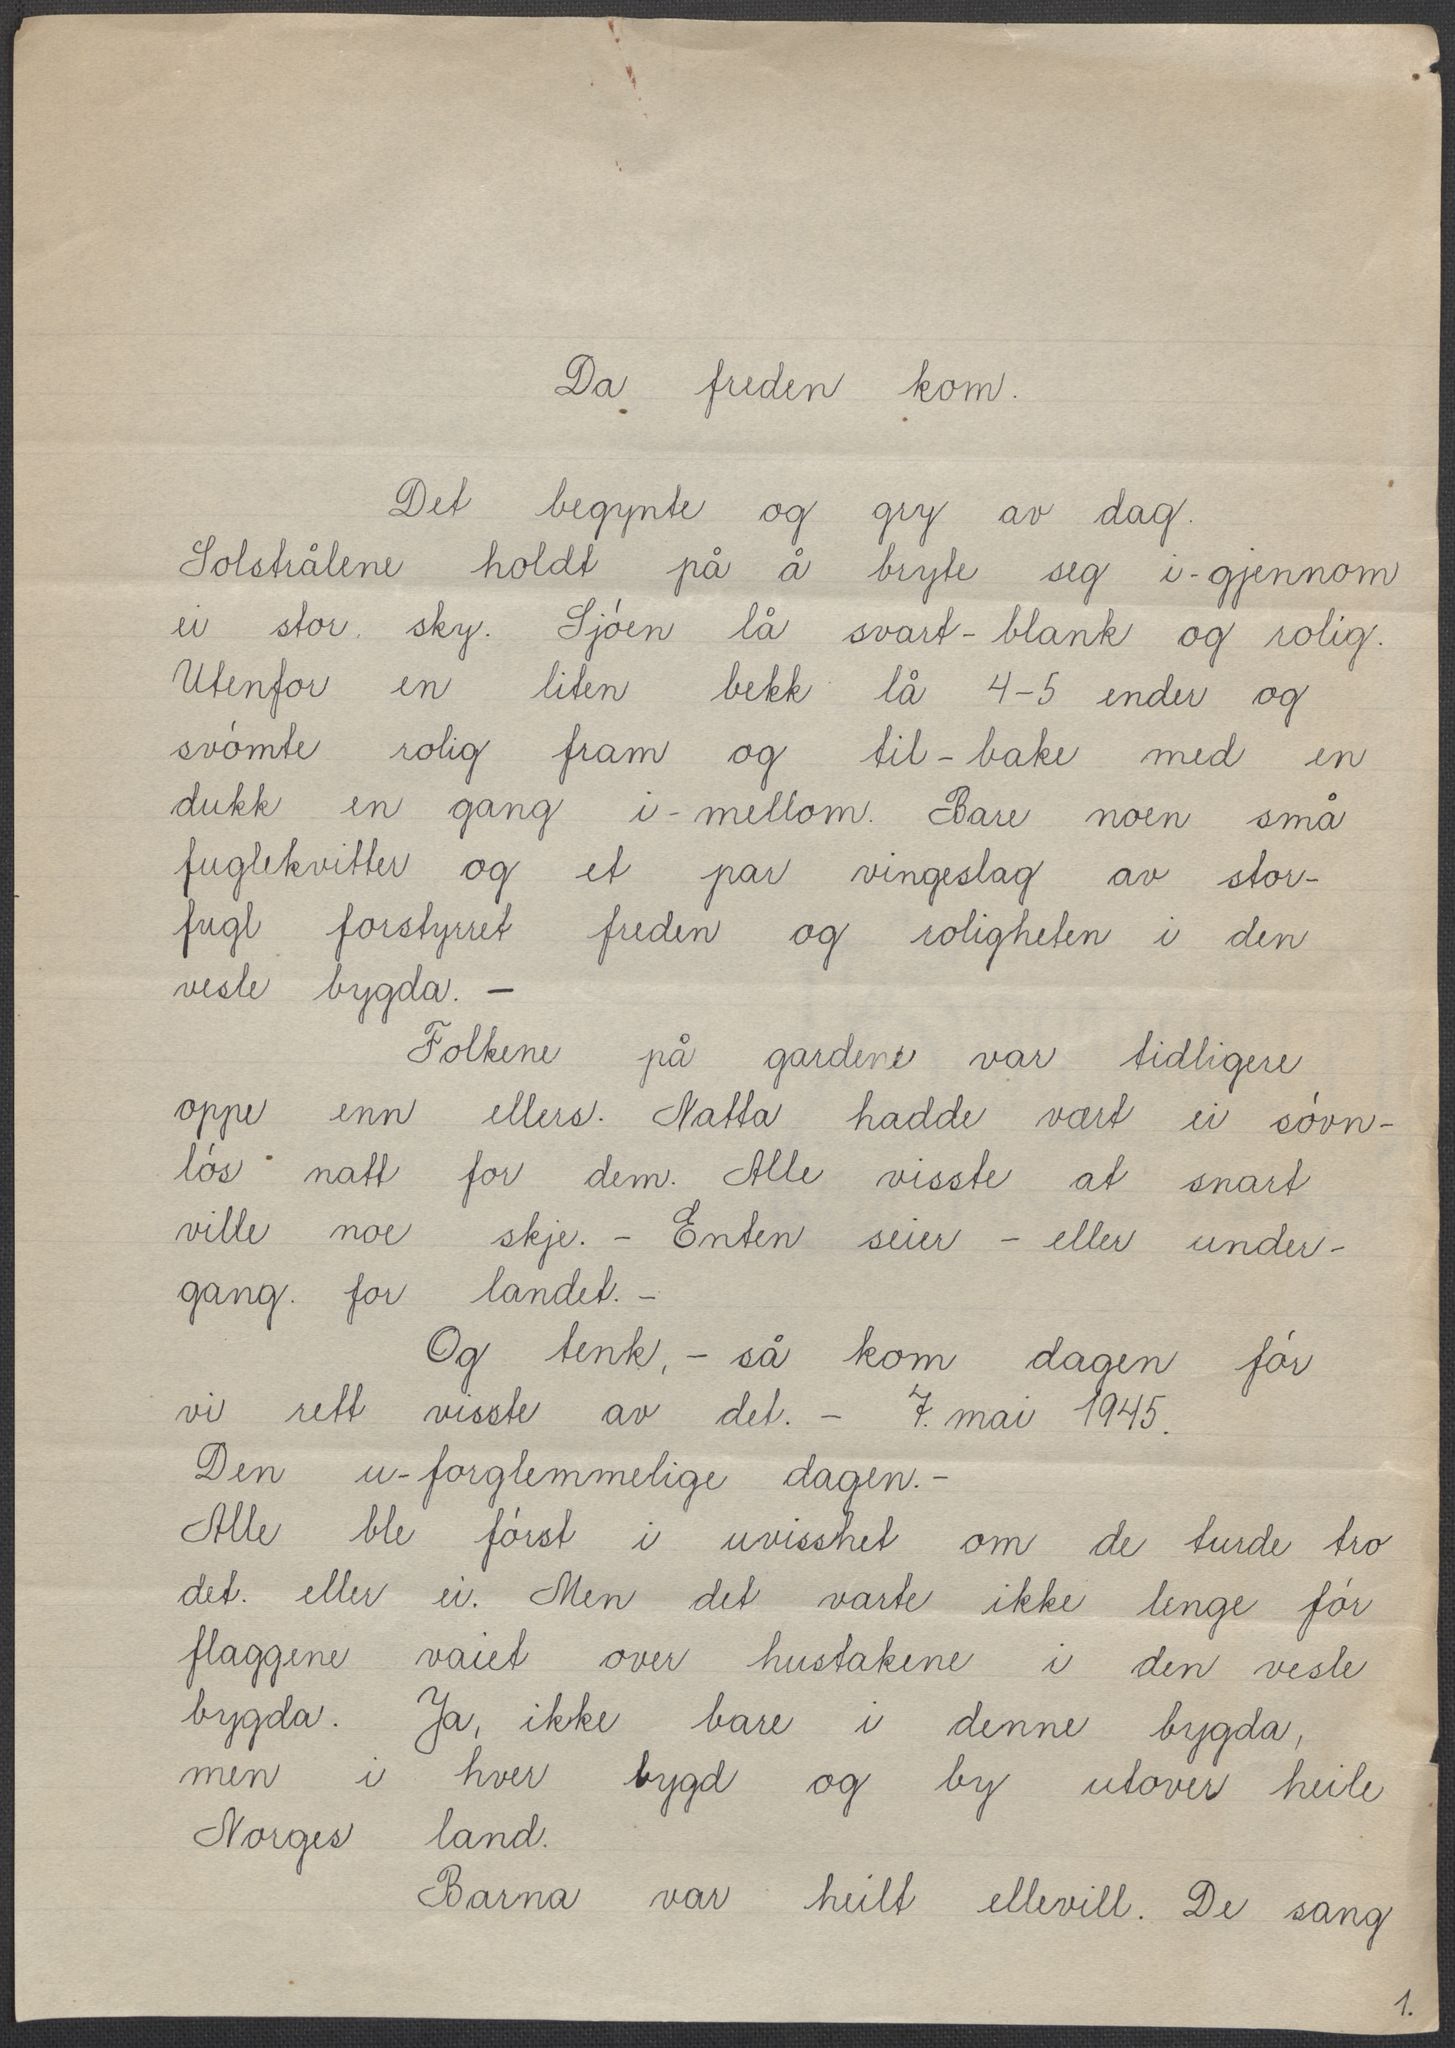 Da freden kom.
Det begynte og gry av dag.
Solstrålene holdt på å bryte seg i-gjennom
ei stor sky. Sjóen lå svart-blank og rolig.
Utenfor en liten bekk lå 4-5 ender og
svómte rolig fram og til-bake med en
dukk en gang i-mellom. Bare noen små
fuglekvitter og et par vingeslag av stor-
fugl forstyrret freden og roligheten i den
vesle bygda. –
Folkene på gardene var tidligere
oppe enn ellers. Natta hadde vært ei sóvn-
lós natt for dem. Alle visste at snart
ville noe skje. – Enten seier – eller under-
gang. for landet. –
Og tenk, – så kom dagen fór
vi rett visste av det. – 7. mai 1945.
Den u-forglemmelige dagen. –
Alle ble fórst i uvisshet om de turde tro
det. eller ei. Men det varte ikke lenge fór
flaggene vaiet over hustakene i den vesle
bygda. Ja, ikke bare i denne bygda,
men i hver bygd og by utover heile
Norges land.
Barna var heilt ellevill. De sang
1.